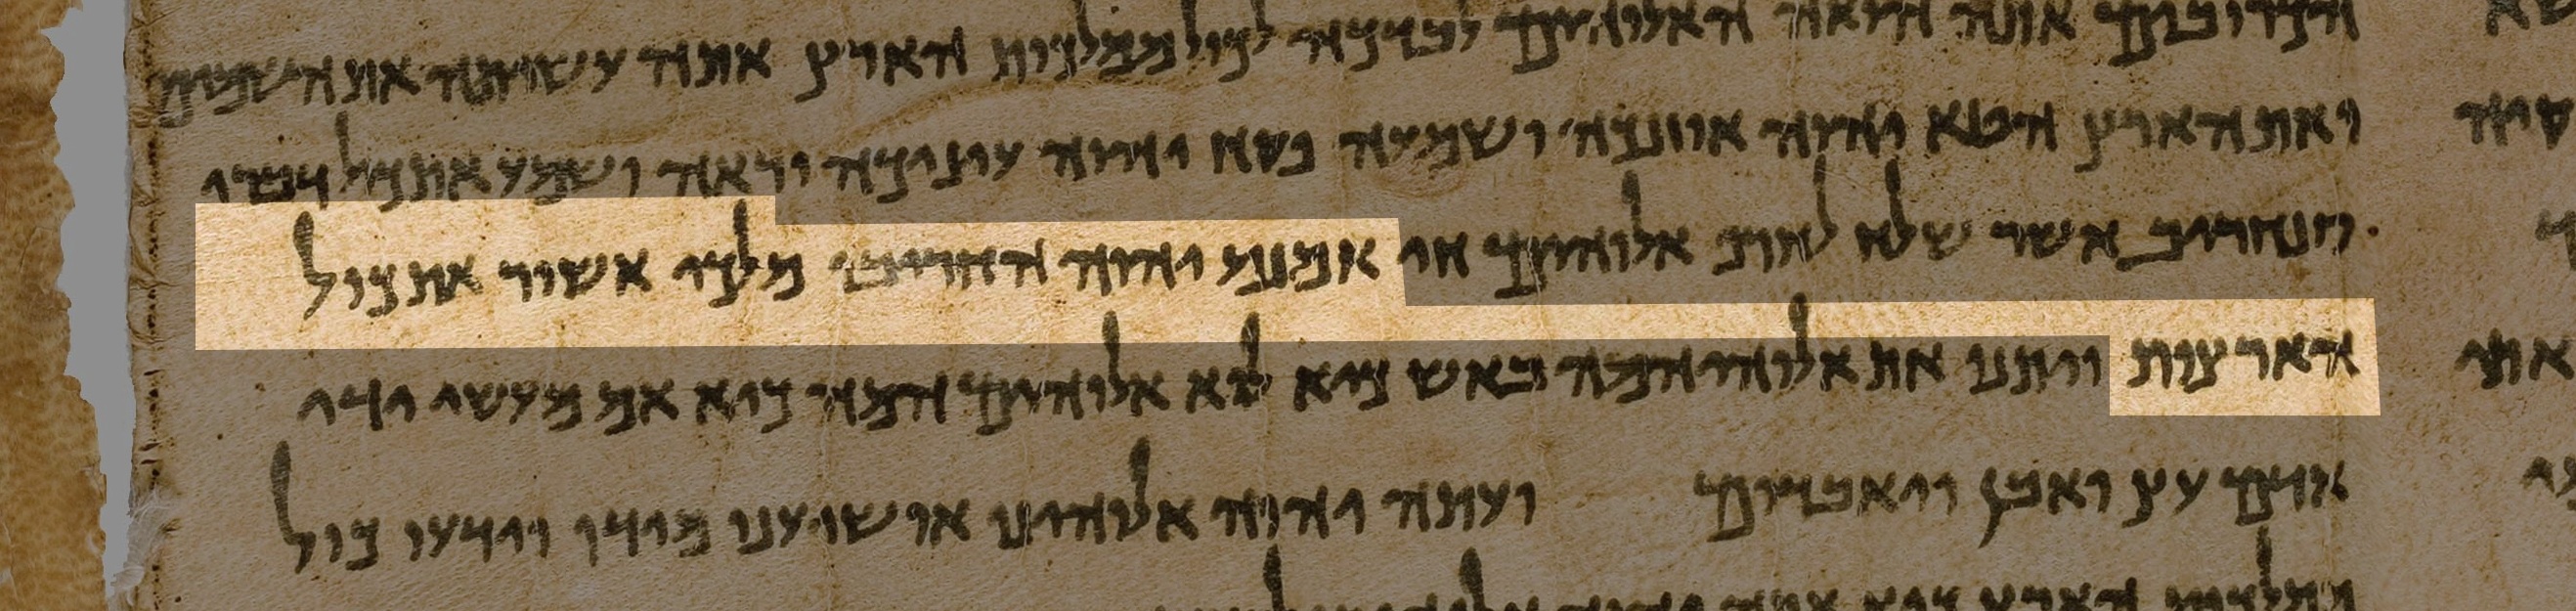 הכרובים אתה הואה האלוהים לבדכה לכול ממלכות הארץ אתה עשיתה את השמים
ואת הארץ הטא יהוה אוזנכה ושמעה פקח יהוה עיניכה וראה ושמע את כול דברי
סנחריב אשר שלח לחרף אלוהים חי אמנם יהוה החריבו מלכי אשור את כול
הארצות ויתנו את אלוהיהמה באש כיא לא אלוהים המה כיא אם מעשי ידי
אדם עץ ואבן ויאבדום ועתה יהוה אלוהינו אושיענו מידו וידעו כול
ממלכות הארץ כיא אתה יהוה